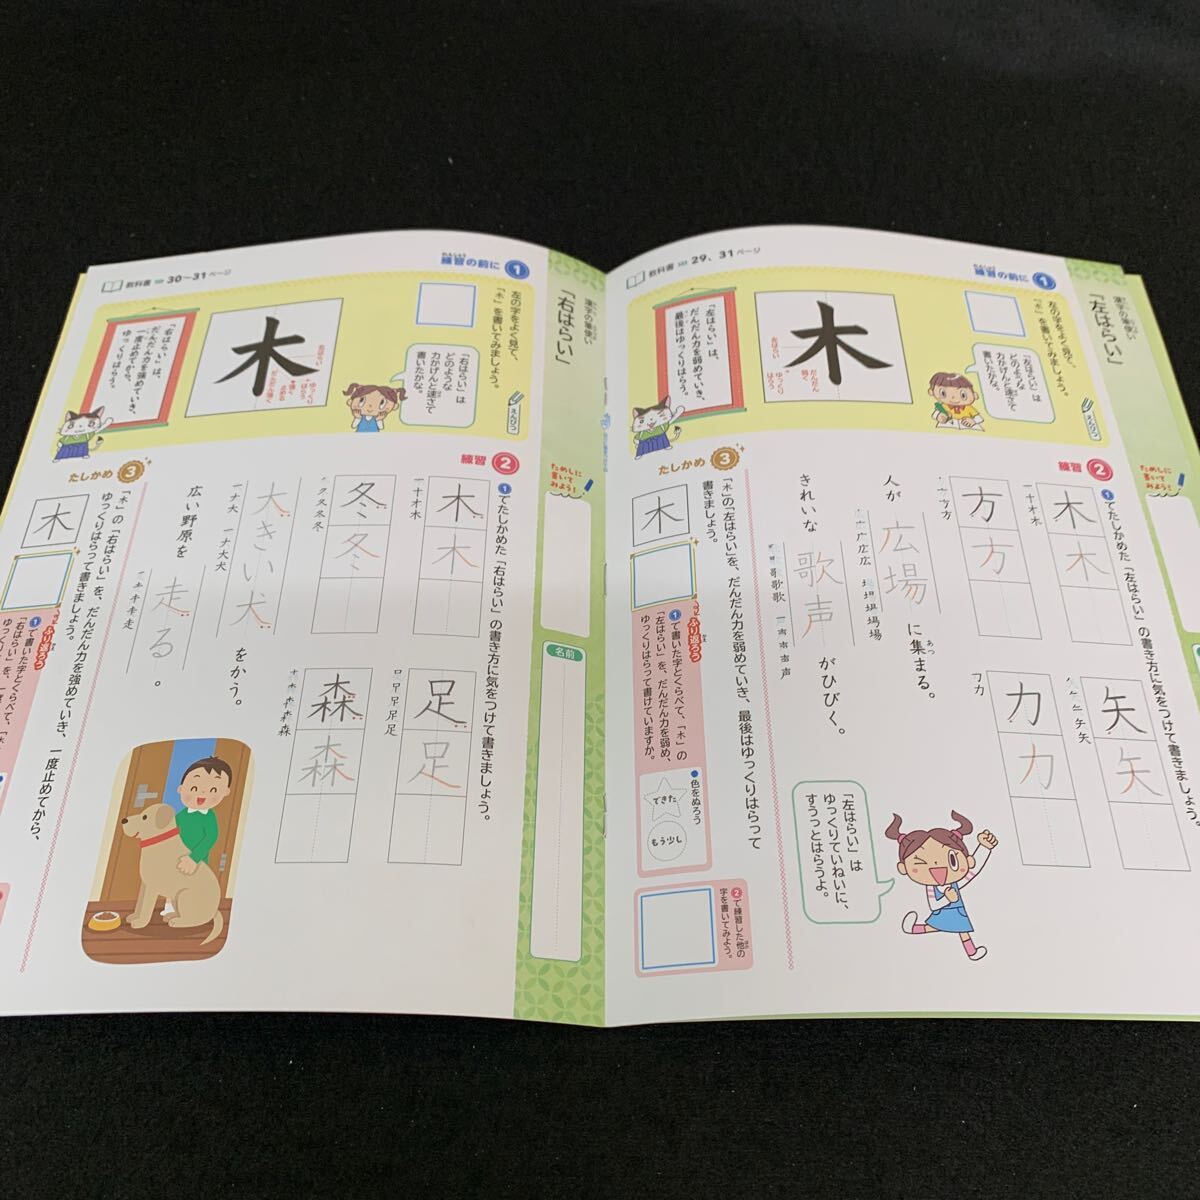 漢字の筆使い
「左はらい」
教科書 29、31ページ
練習の前に 1
左の字をよく見て、
「木」を書いてみましょう。
えんぴつ
「左はらい」は
どのような
力かげんと速さで
書いたかな。
木
左はらい
だんだん
弱く
ゆっくり
はらう
「左はらい」は、
だんだん力を弱めていき、
最後はゆっくりはらう。
ためしに
書いて
みよう！
練習 2
1でたしかめた「左はらい」の書き方に気をつけて書きましょう。
木
木
一十オ木
矢
矢
方
方
力
力
フカ
人が広場に集まる。
きれいな歌声がひびく。
「左はらい」は
ゆっくりていねいに、
すうっとはらうよ。
たしかめ 3
「木」の「左はらい」を、だんだん力を弱めていき、最後はゆっくりはらって
書きましょう。
木
ふり返ろう
1で書いた字とくらべて、「木」の
「左はらい」を、だんだん力を弱め、
ゆっくりはらって書けていますか。
色をぬろう
できた
もう少し
2で練習した他の
字を書いてみよう。
漢字の筆使い
「右はらい」
教科書 30〜31ページ
練習の前に 1
左の字をよく見て、
「木」を書いてみましょう。
えんぴつ
「右はらい」は
どのような
力かげんと速さで
書いたかな。
木
右はらい
だんだん強く
強く
止める
ゆっくり
はらう
「右はらい」は、
だんだん力を強めていき、
一度止めてから、
ゆっくりはらう。
ためしに
書いて
みよう！
名前
練習 2
1でたしかめた「右はらい」の書き方に気をつけて書きましょう。
木
木
一十オ木
足
足
冬
冬
森
森
大きい犬をかう。
一ナ大
一ナ大犬
広い野原を走る。
たしかめ 3
「木」の「右はらい」を、だんだん力を強めていき、一度止めてから、
ゆっくりはらって書きましょう。
木
ふり返ろう
1で書いた字とくらべて、「木
「右はらい」を、一度
ゆっくり